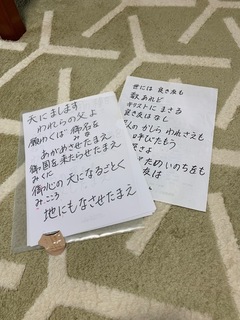 天にまします
われらの父よ
願わくば 御名を
みな
あがめさせたまえ
御国を来たらせたまえ
みくに
御心の天になるごとく
みこころ
地にもなさせたまえ
世には 良き友も
数あれど
キリストに まさる
良き友はなし
かしら われさえも
呼びたもう
さよ
ためいのちをも
友は